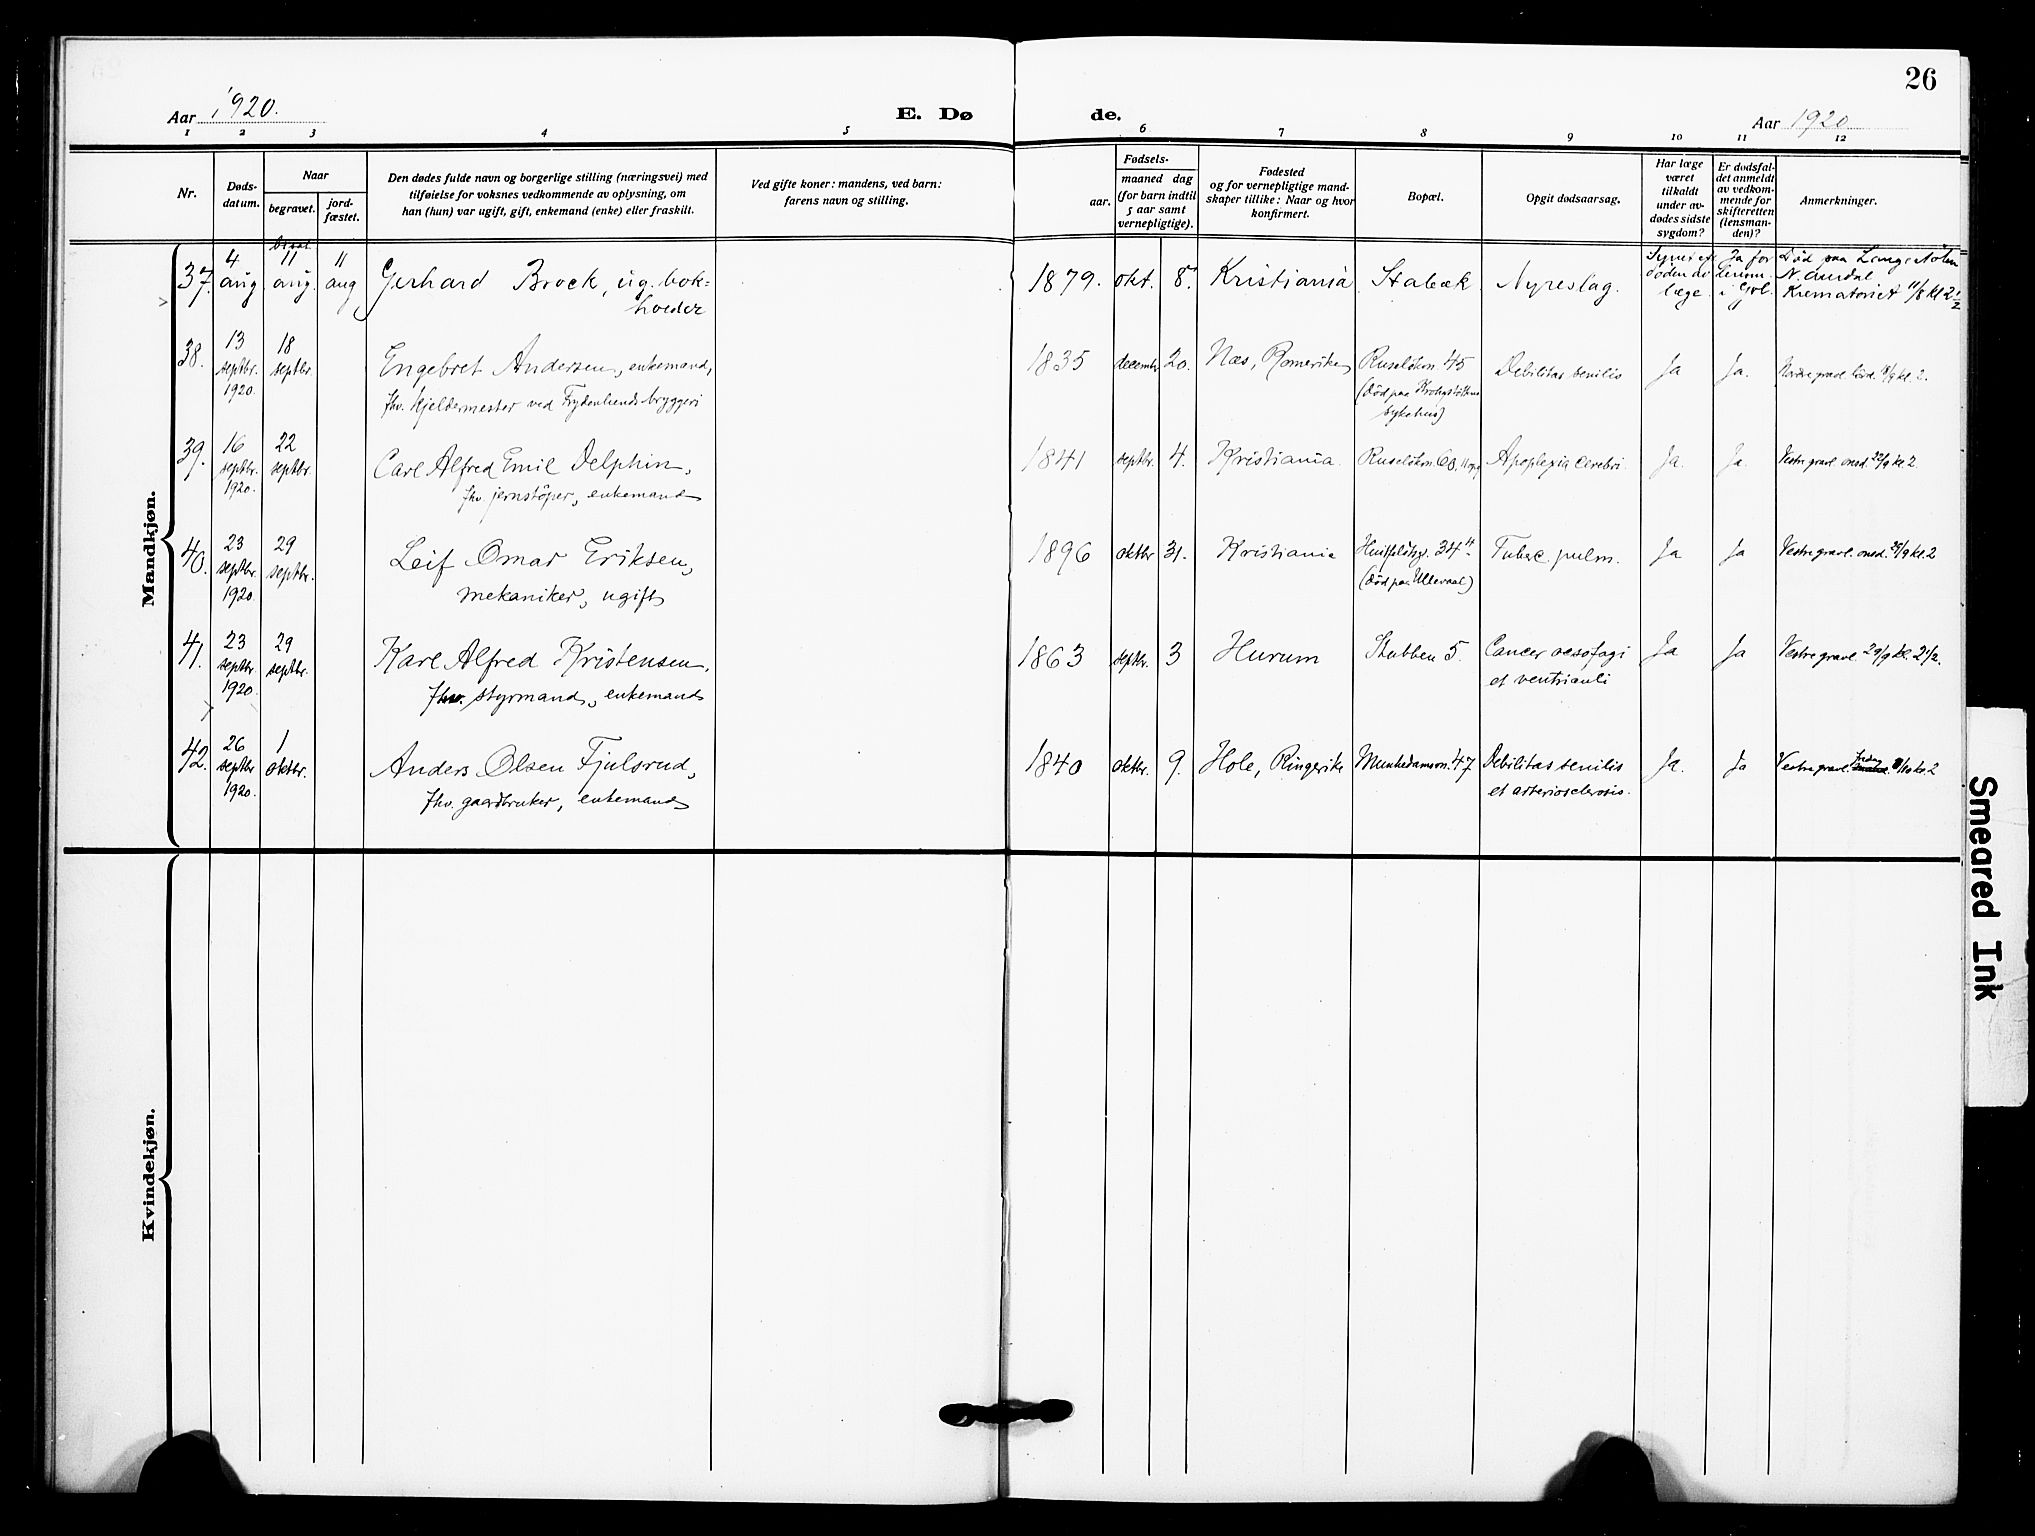 26
Aar 1920.
E. Dø
de.
Aar 1920
1 2 3 4 5 6 7 8 9 10 11 12
Nr.
Døds-
datum.
Naar
begravet.
jord-
fæstet.
Den dødes fulde navn og borgerlige stilling (næringsvei) med
tilføielse for voksnes vedkommende av oplysning, om
han (hun) var ugift, gift, enkemand (enke) eller fraskilt.
Ved gifte koner: mandens, ved barn:
farens navn og stilling.
Fødsels-
aar.
maaned dag
(for barn indtil
5 aar samt
vernepligtige).
Fødested
og for vernepligtige mand-
skaper tillike: Naar og hvor
konfirmert.
Bopæl.
Opgit dødsaarsag.
Har læge
været
tilkaldt
under av-
dødes sidste
sygdom?
Er dødsfal-
det anmeldt
av vedkom-
mende for
skifteretten
(lensman-
den)?
Anmerkninger.
Mandkjøn.
37.
4
aug
11
aug.
11
aug
Gerhard Brock, ug. bok-
holder
1879. okt. 8. Kristiania
Stabæk
Nyreslag.
læge
Ja for
Død paa
N. Aurdal
Krematoriet 11/8 kl 2 1/2
38.
13
septbr.
1920.
18
septbr.
Engebret Andersen, enkemand,
fhv. kjeldermester ved Frydenlunds bryggeri
1835 decembr 20. Næs, Romerike
Ruseløkvn. 45
(død paa Krohgstøttens
sykehus)
Debilitas senilis
Ja
Ja.
Nordre gravl. lørd. 18/9 kl. 2.
39.
16
septbr.
1920.
22
septbr.
Carl Alfred Emil Delphin,
fhv. jernstøper, enkemand
1841 septbr. 4. Kristiania.
Ruseløkvn. 60,
Apoplexia cerebri.
Ja.
Ja.
Vestre gravl. onsd. 22/9 kl 2.
40.
23
septbr.
1920.
29
septbr.
Leif Omar Eriksen,
mekaniker, ugift
1896 oktbr 31. Kristiania
Huitfeldtsgt. 34 II.
(død paa Ullevaal)
Tuberc. pulm.
Ja
Ja
Vestre gravl. onsd. 29/9 kl. 2
41.
23
septbr.
1920.
29
septbr.
Karl Alfred Kristensen,
fhv. styrmand, enkemand
1863 septbr. 3 Hurum
Stubben 5.
Cancer oesofagi
et ventriculi
Ja
Ja
Vestre gravl. 29/9 kl. 2 1/2.
42.
26
septbr
1920.
1
oktbr.
Anders Olsen Fjulsrud,
fhv. gaardbruker, enkemand
1840 oktbr. 9. Hole, Ringerike
Munkedamsvn. 47
Debilitas senilis
et arteriosclerosis.
Ja.
Ja
Vestre gravl. fredag 1/10 kl 2
Kvindekjøn.
Smeared Ink